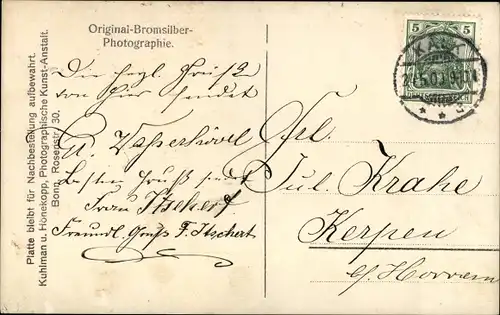 Original-Bromsilber-
Photographie.
Platte bleibt für Nachbestellung aufbewahrt.
Kuhlman u. Hönekopp, Photographische Kunst-Anstalt.
Bonn, Rosenstr. 30.
Die hrzl. Grüße
von hier sendet
Wasserhövel
besten Gruß
Frau Itschert
Freundl. Gruß F. Itschert
Frl.
Jul. Krahe
Kerpen
b/ Horrem
5 5
DEUTSCHES REICH